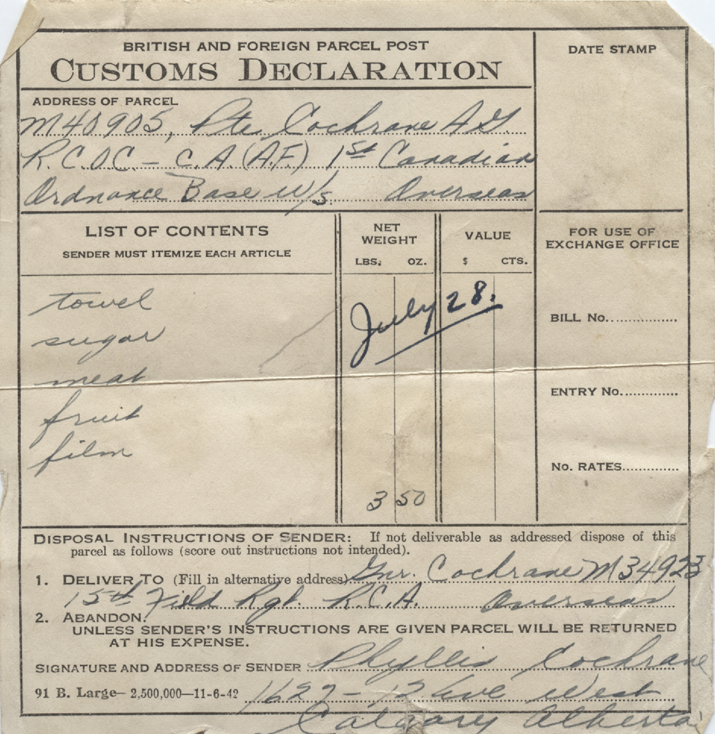 BRITISH AND FOREIGN PARCEL POST
CUSTOMS DECLARATION
DATE STAMP
ADDRESS OF PARCEL
M40905, Pte. Cochrane A.G.
R.C.O.C. - C.A. (A.F.) 1st Canadian
Ordnance Base W/s Overseas
LIST OF CONTENTS
SENDER MUST ITEMIZE EACH ARTICLE
NET WEIGHT
LBS. OZ.
VALUE
$ CTS.
FOR USE OF
EXCHANGE OFFICE
towel
sugar
meat
fruit
film
July 28.
3 50
BILL No.
ENTRY No.
No. RATES
DISPOSAL INSTRUCTIONS OF SENDER: If not deliverable as addressed dispose of this
parcel as follows (score out instructions not intended).
1. DELIVER TO (Fill in alternative address) Gnr. Cochrane M34923
15th Field Rgt. R.C.A. Overseas
2. ABANDON.
UNLESS SENDER'S INSTRUCTIONS ARE GIVEN PARCEL WILL BE RETURNED
AT HIS EXPENSE.
SIGNATURE AND ADDRESS OF SENDER Phyllis Cochrane
91 B. Large—2,500,000—11-6-42 1627 - 12 Ave West
Calgary Alberta